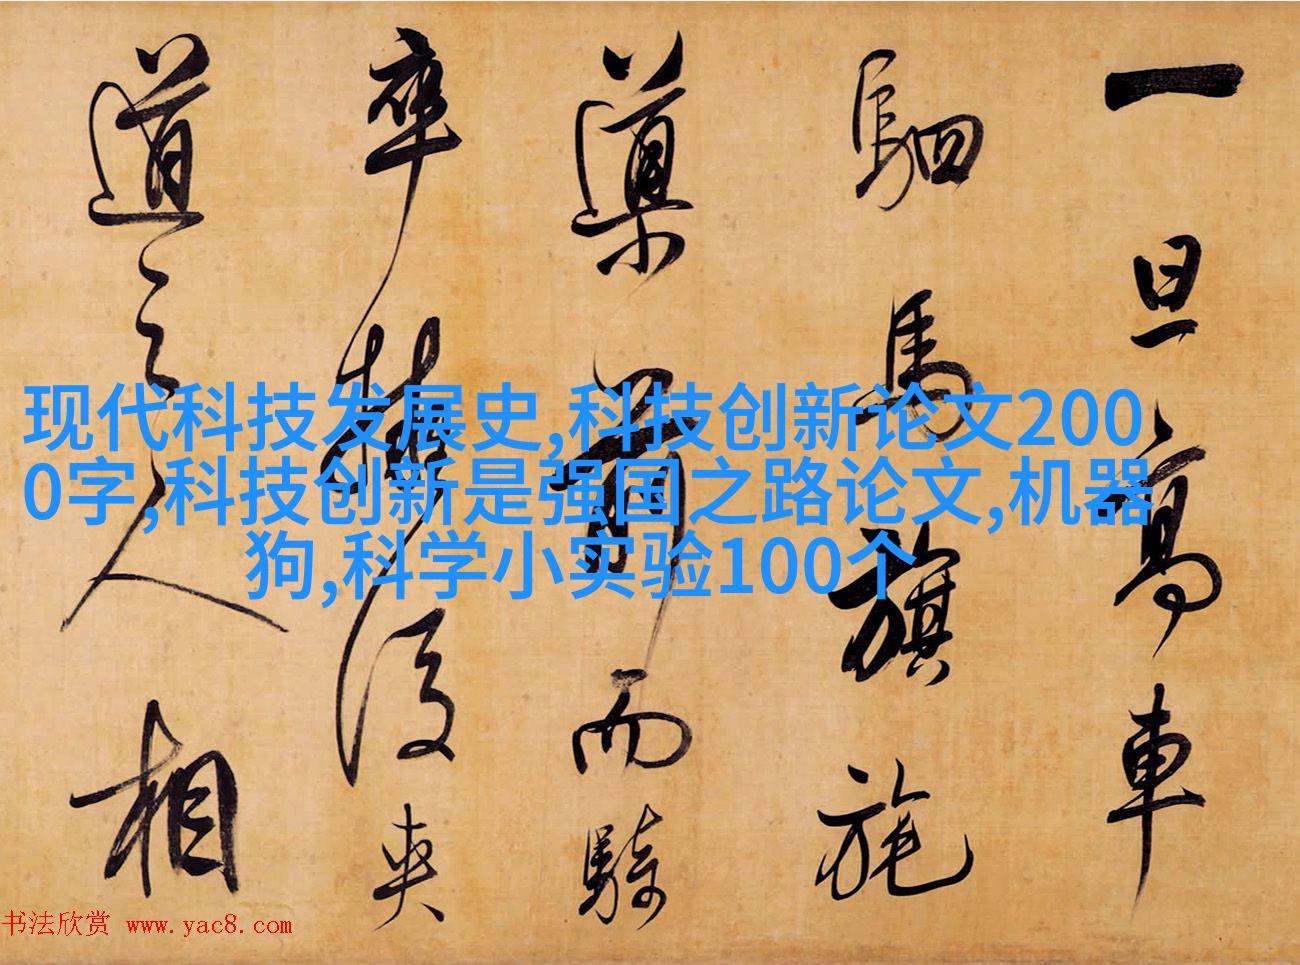 一旦高車
駟馬旗旄
導前而騎
卒擁後夾
道之人相
现代科技发展史,科技创新论文200
0字,科技创新是强国之路论文,机器
狗,科学小实验100个
书法欣赏 www.yac8.com